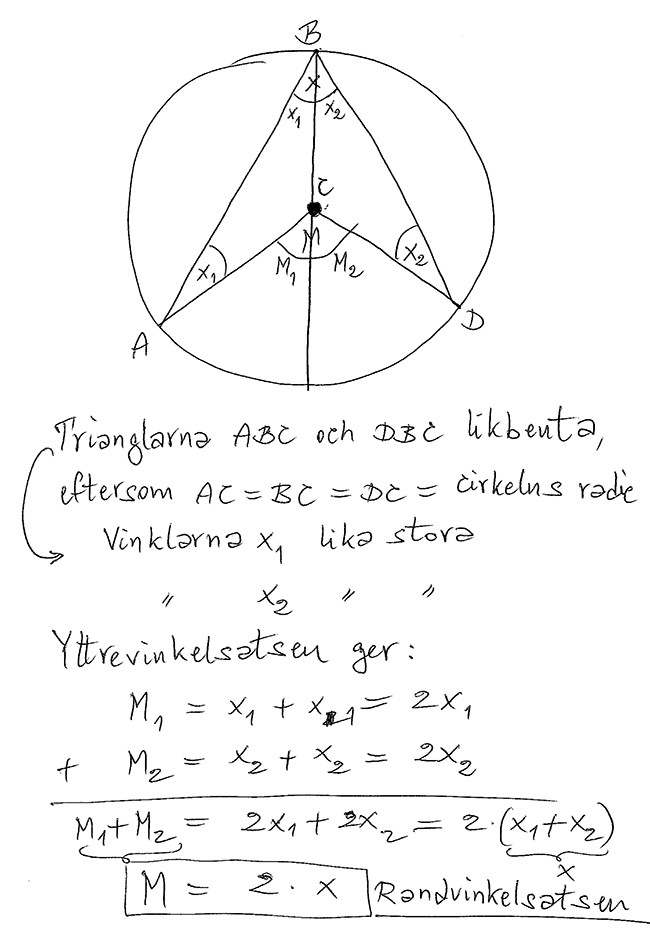 B
x
x₁ x₂
C
M
M₁ M₂
x₁
x₂
A
D
Trianglarna ABC och DBC likbenta,
eftersom AC = BC = DC = cirkelns radie
Vinklarna x₁ lika stora
〃 x₂ 〃 〃
Yttrevinkelsatsen ger:
M₁ = x₁ + x₁ = 2x₁
+ M₂ = x₂ + x₂ = 2x₂
M₁+M₂ = 2x₁ + 2x₂ = 2·(x₁+x₂)
x
M = 2 · x Randvinkelsatsen